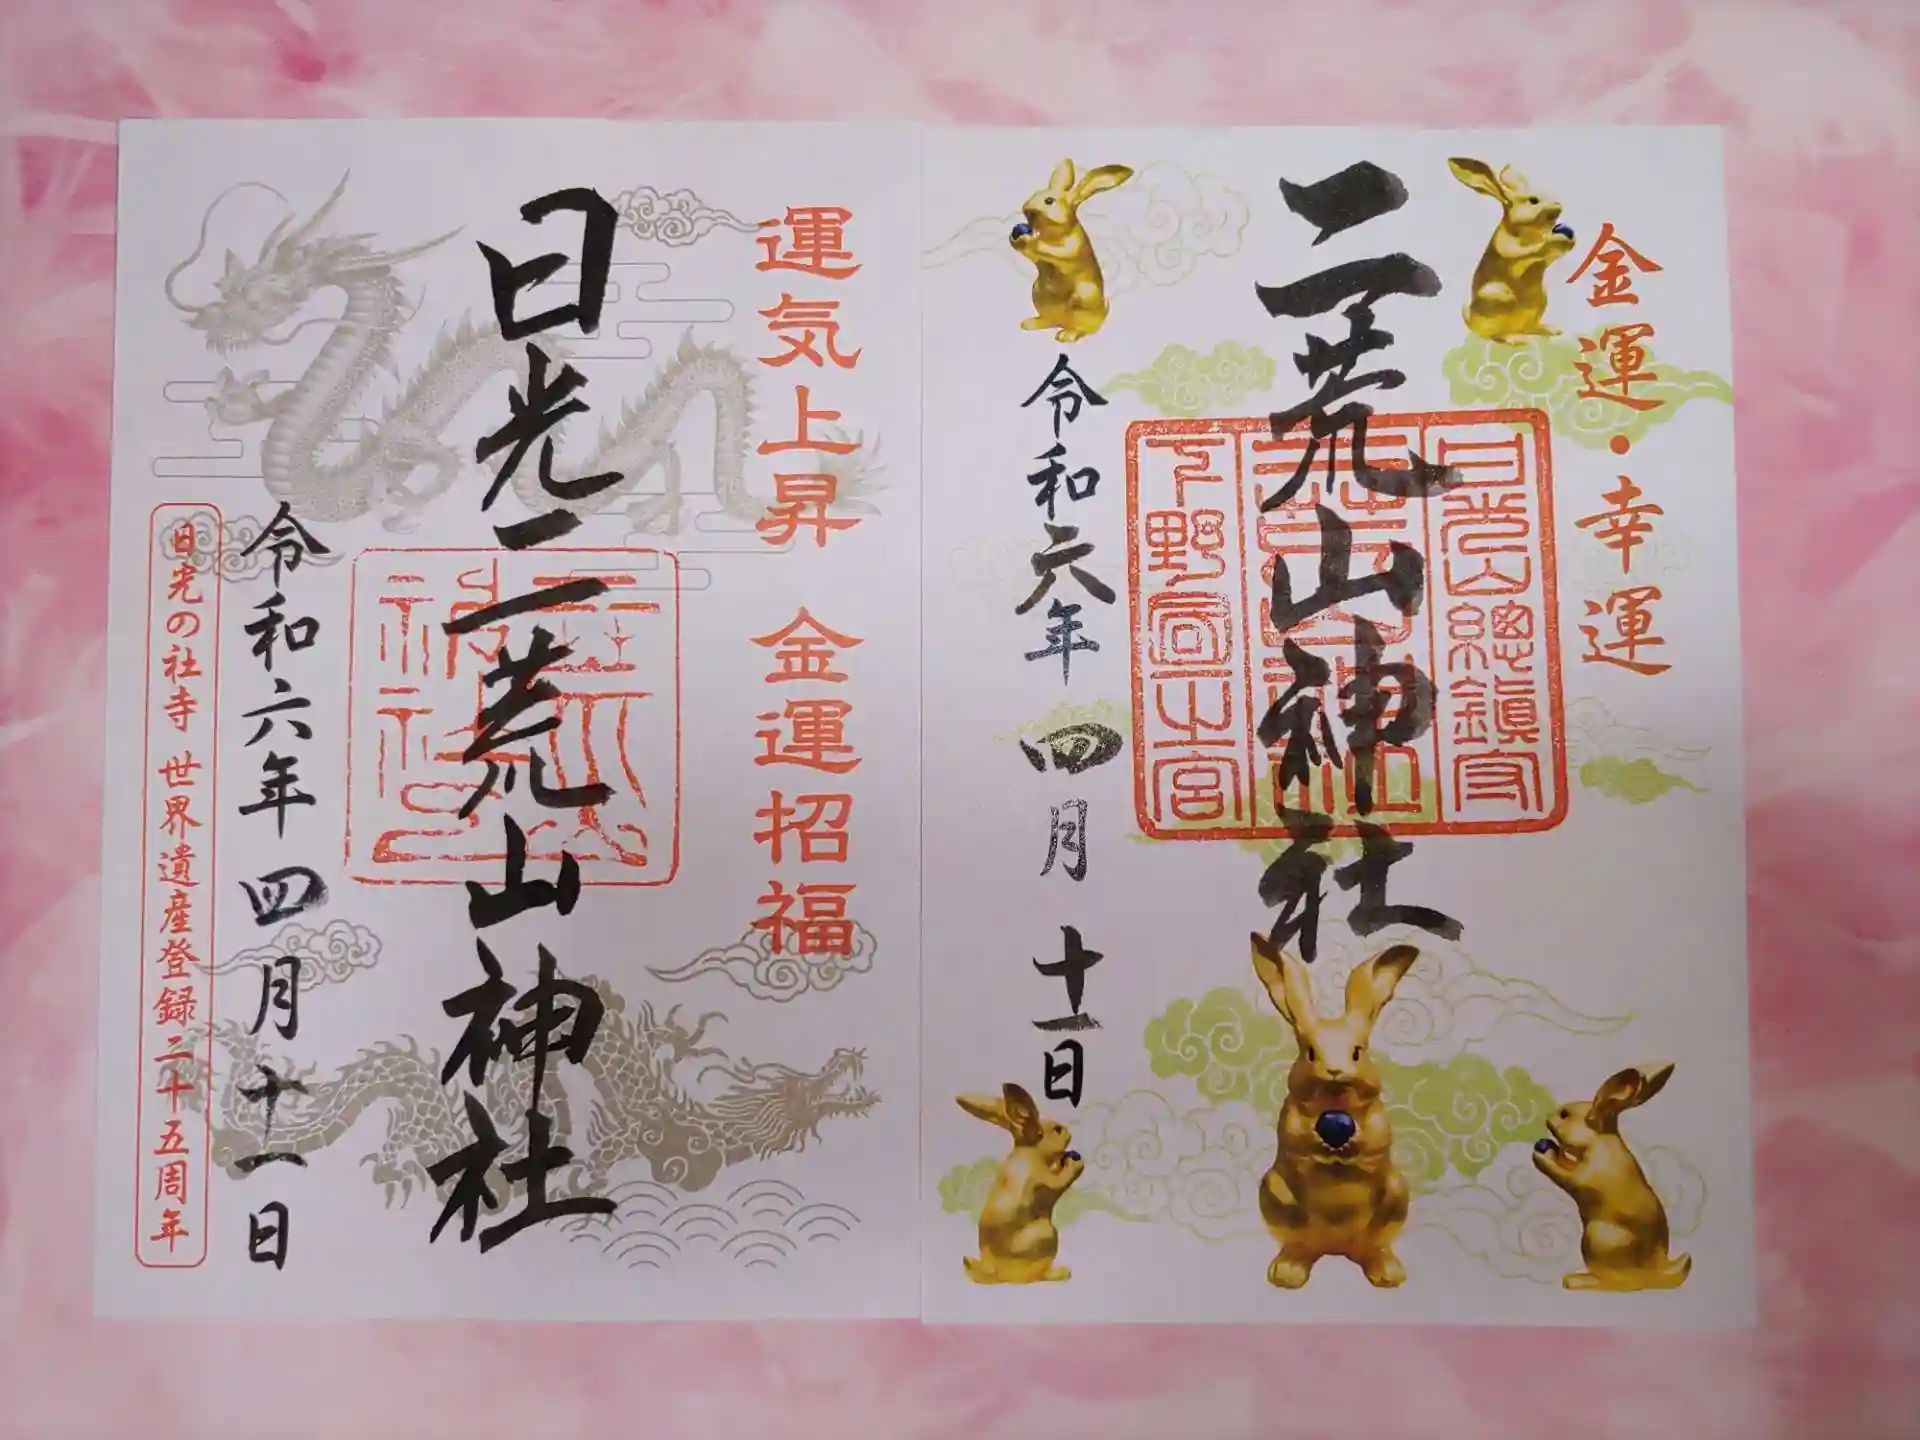 運気上昇 金運招福
日光二荒山神社
令和六年四月十一日
日光の社寺 世界遺産登録二十五周年
金運・幸運
二荒山神社
日光山総鎮守
下野國一之宮
令和六年四月十一日